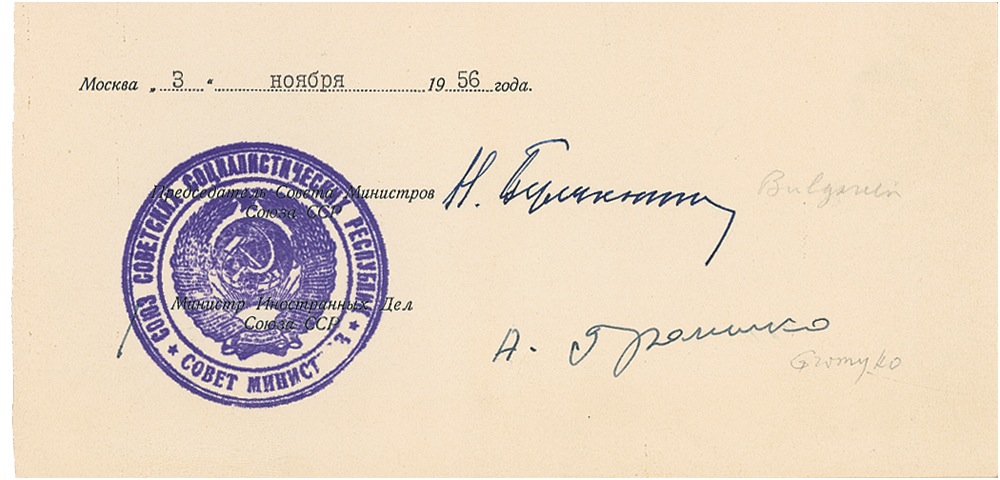 Москва „ 3 “ ноября 1956 года.
СОЮЗ СОВЕТСКИХ СОЦИАЛИСТИЧЕСКИХ РЕСПУБЛИК
Председатель Совета Министров
Союза ССР
Н. Булганин
Bulganin
Министр Иностранных Дел
Союза ССР
А. Громыко
Gromyko
★ СОВЕТ МИНИСТ